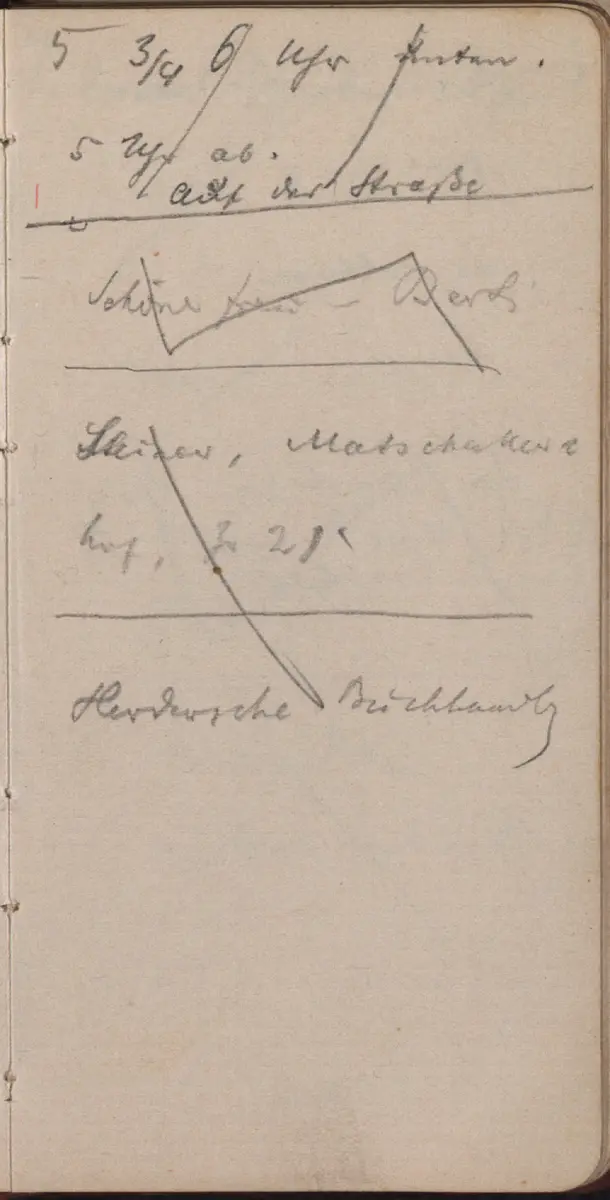 5 3/4 6 Uhr unten.
5 Uhr ab.
auf der Straße
Schöne Frau –
Matschakker
hof, 
Herdersche Buchhandlg